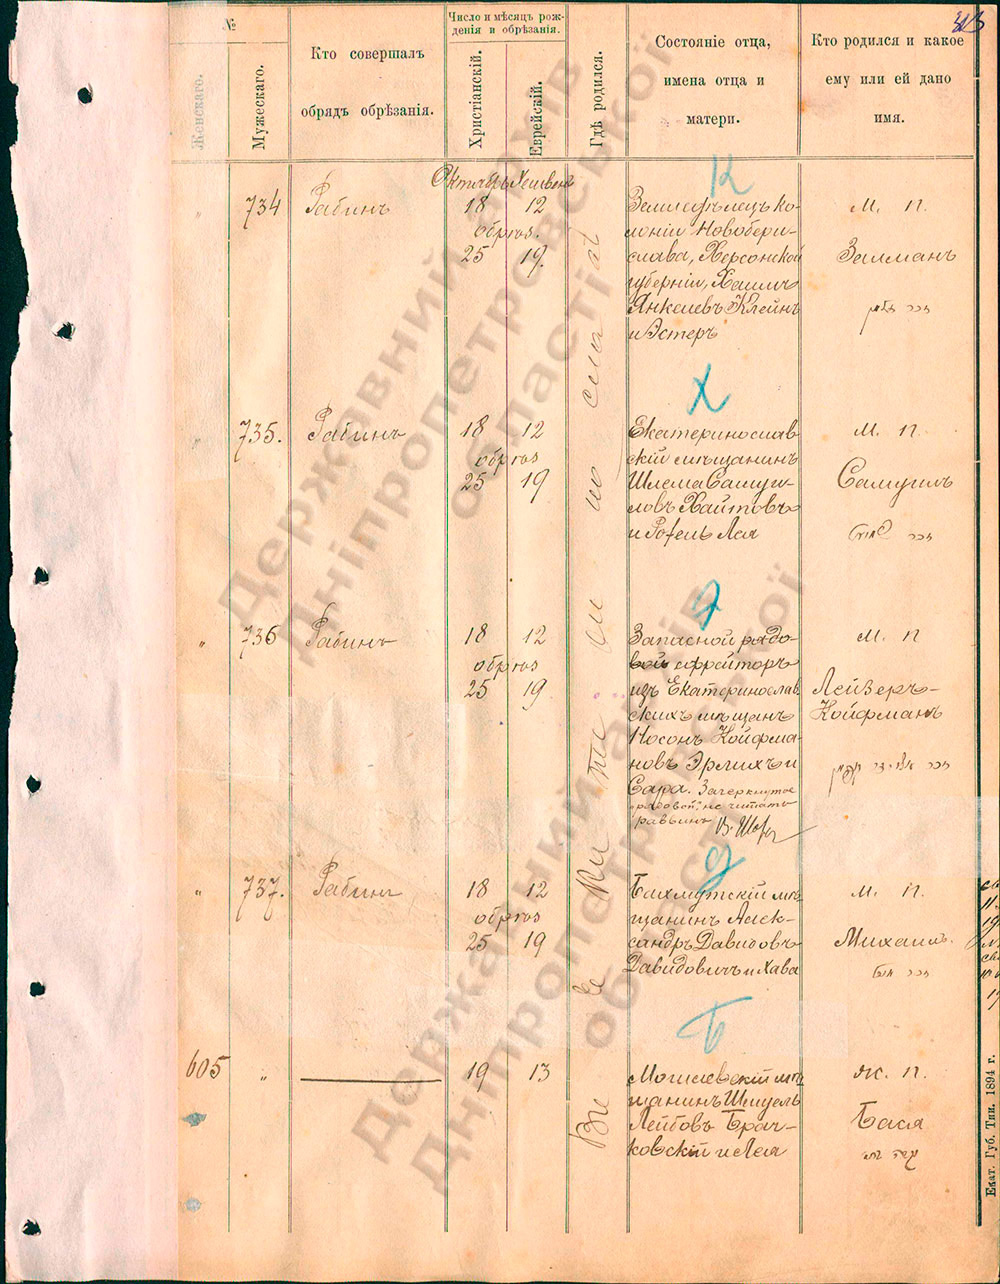 313
№
Женскаго.
Мужескаго.
Кто совершалъ
обрядъ обрѣзанія.
Число и мѣсяцъ рож-
денія и обрѣзанія.
Христіанскій.
Еврейскій.
Гдѣ родился.
Состояніе отца,
имена отца и
матери.
Кто родился и какое
ему или ей дано
имя.
Октябрь Хешвенъ
К
„ 734 Рабинъ 18 12
обрѣз.
25 19.
Земледѣлецъ ко-
лоніи Новобери-
слава, Херсонской
губерніи, Хаимъ
Янкелевъ Клейнъ
и Эстеръ
М. П.
Залманъ
זכר זלמן
Х
„ 735. Рабинъ 18 12
обрѣз
25 19
Екатеринослав
скій мѣщанинъ
Шлема Самуи-
ловъ Хаитовъ
и Рохель Лея
М. П.
Самуилъ
זכר שמואל
Э
„ 736 Рабинъ 18 12
обрѣз
25 19
Запасной рядо-
вой ефрейторъ
изъ Екатеринослав
скихъ мѣщанъ
Носонъ Койфма-
новъ Эрлихъ и
Сара. Зачеркнутое
„рядовой“ не читать
раввинъ
М. П
Лейзеръ-
Койфманъ
זכר
Д
„ 737. Рабинъ 18 12
обрѣз
25 19
Бахмутскій мѣ-
щанинъ Алек-
сандръ Давидовъ
Давидовичъ и Хава
М. П.
Михаилъ.
זכר
Б
605 „ 19 13
Могилевскій мѣ
щанинъ Шмуель
Лейбовъ Брач-
ковскій и Лея
Ж. П.
Бася
Екат. Губ. Тип. 1894 г.
Державний архів
Дніпропетровської
області
Державний архів
Дніпропетровської
області